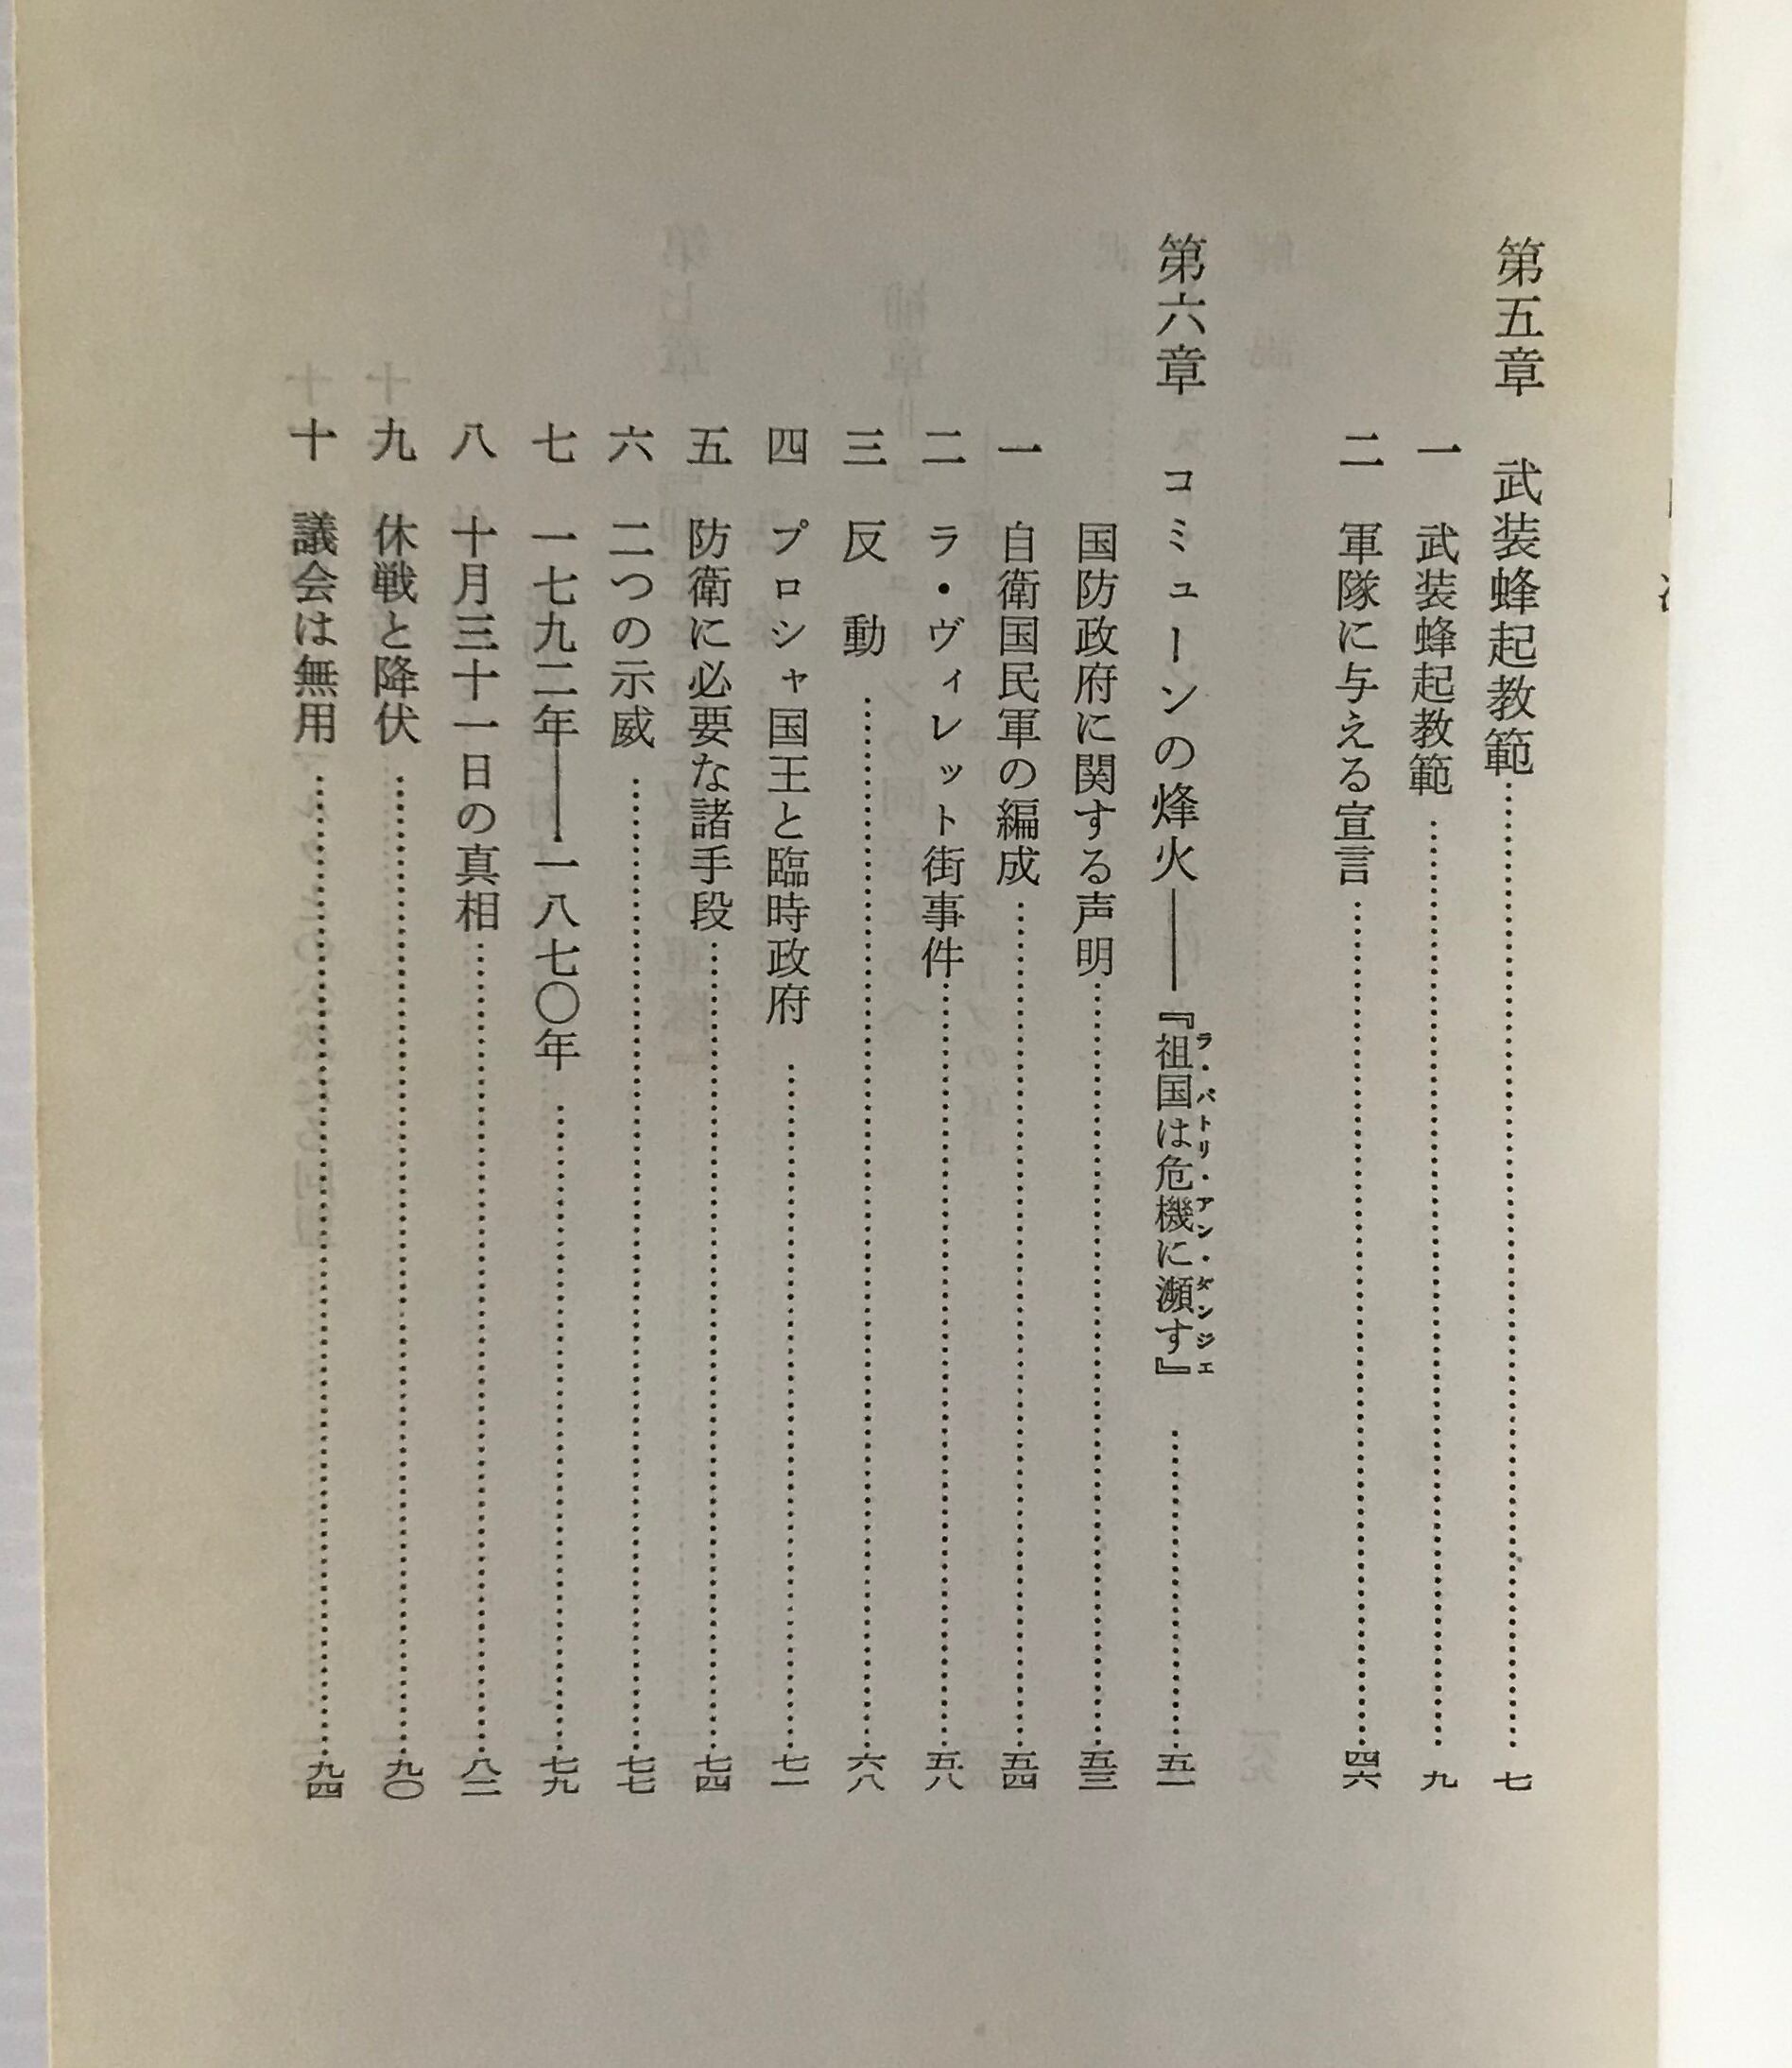 第五章 武装蜂起教範……七
一 武装蜂起教範……九
二 軍隊に与える宣言……四六
第六章 コミューンの烽火――『祖国は危機に瀕す』……五一
ラ・パトリ・アン・ダンジェ
国防政府に関する声明……五三
一 自衛国民軍の編成……五四
二 ラ・ヴィレット街事件……五八
三 反動……六八
四 プロシャ国王と臨時政府……七一
五 防衛に必要な諸手段……七四
六 二つの示威……七七
七 一七九二年――一八七〇年……七九
八 十月三十一日の真相……八二
九 休戦と降伏……九〇
十 議会は無用……九四